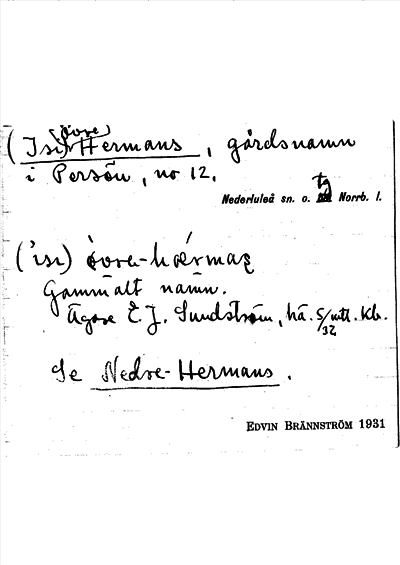 (Isi) (övre) Hermans, gårdsnamn
i Persön, no 12.
Nederluleå sn. o. tg Norrb. l.
('isi) òvrα-hǽrmaʂ
Gammalt namn.
Ägare E. J. Sundström, hä. 5/32 mtl. Kr.
Se Nedre-Hermans.
EDVIN BRÄNNSTRÖM 1931